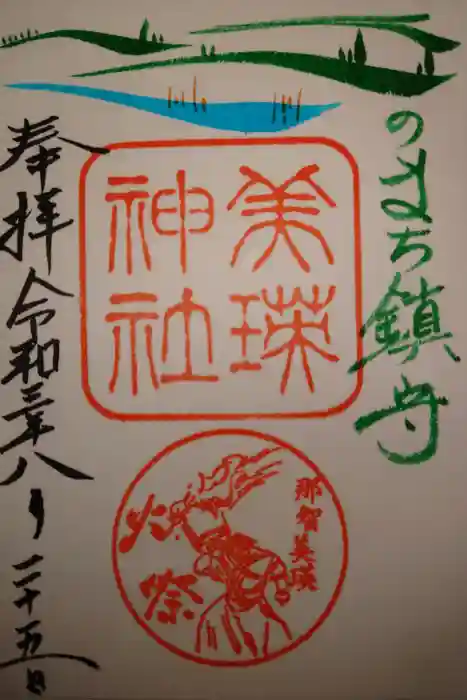 のまち鎮守
美瑛
神社
那智美瑛
火祭
奉拝 令和三年八月二十五日